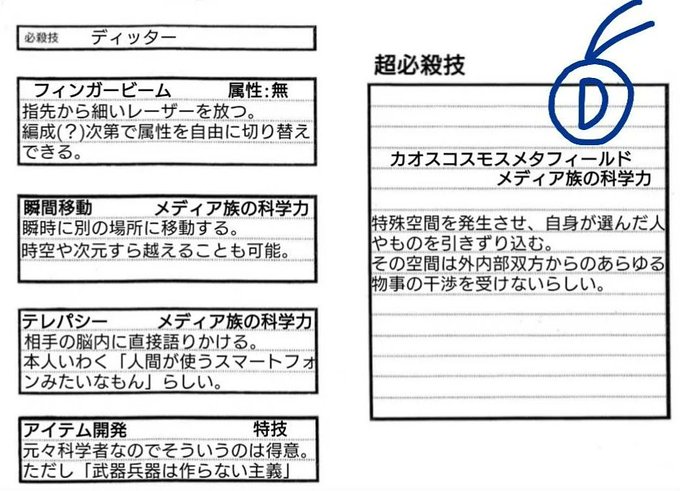 必殺技 ディッター
フィンガービーム 属性:無
指先から細いレーザーを放つ。
編成(?)次第で属性を自由に切り替え
できる。
瞬間移動 メディア族の科学力
瞬時に別の場所に移動する。
時空や次元すら越えることも可能。
テレパシー メディア族の科学力
相手の脳内に直接語りかける。
本人いわく「人間が使うスマートフォ
ンみたいなもん」らしい。
アイテム開発 特技
元々科学者なのでそういうのは得意。
ただし「武器兵器は作らない主義」
超必殺技
D
カオスコスモスメタフィールド
メディア族の科学力
特殊空間を発生させ、自身が選んだ人
やものを引きずり込む。
その空間は外内部双方からのあらゆる
物事の干渉を受けないらしい。